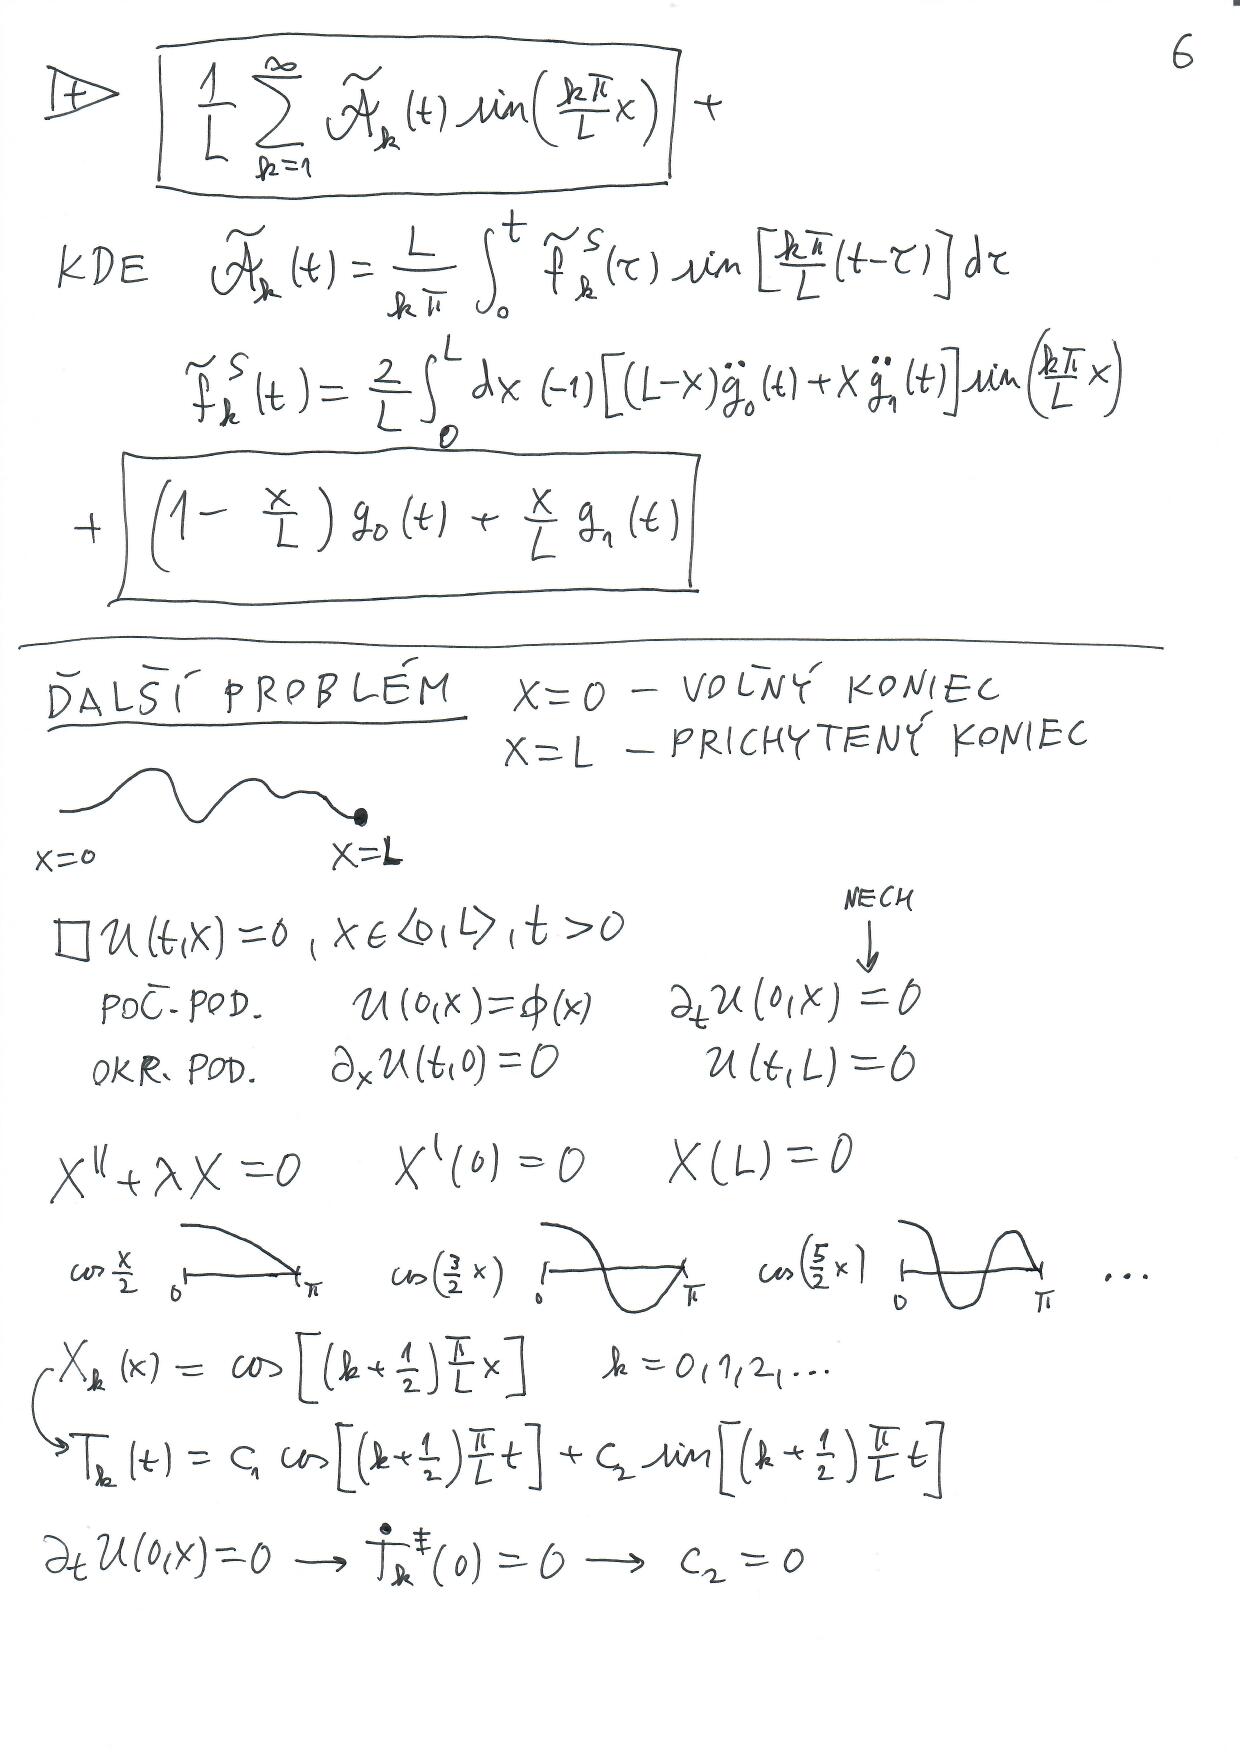 6
+ 1/L ∑_{k=1}^{∞} Ã_k(t) sin(kπ/L x) +
KDE Ã_k(t) = L/kπ ∫_0^t f̃_k^S(τ) sin[kπ/L (t-τ)] dτ
f̃_k^S(t) = 2/L ∫_0^L dx (-1)[(L-x)g̈_0(t) + x g̈_1(t)] sin(kπ/L x)
+ (1 - x/L) g_0(t) + x/L g_1(t)
ĎALŠÍ PROBLÉM x=0 - VOĽNÝ KONIEC
x=L - PRICHYTENÝ KONIEC
x=0 x=L
NECH
□u(t,x)=0, x∈<0,L>, t>0
POČ. POD. u(0,x)=ϕ(x) ∂_t u(0,x)=0
OKR. POD. ∂_x u(t,0)=0 u(t,L)=0
X''+λX=0 X'(0)=0 X(L)=0
cos x/2 0 π cos(3/2 x) 0 π cos(5/2 x) 0 π ...
X_k(x) = cos[(k+1/2) π/L x] k=0,1,2,...
T_k(t) = c_1 cos[(k+1/2) π/L t] + c_2 sin[(k+1/2) π/L t]
∂_t u(0,x)=0 → Ṫ_k(0)=0 → c_2=0